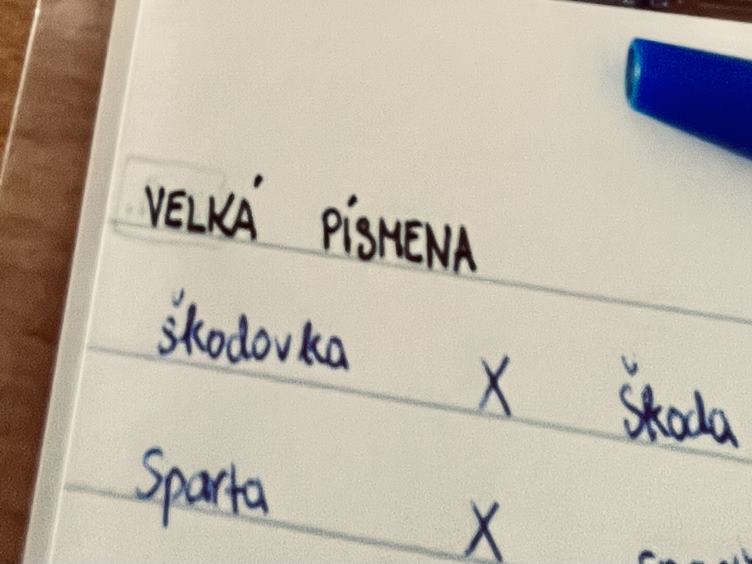 VELKÁ PÍSMENA
škodovka X Škoda
Sparta X